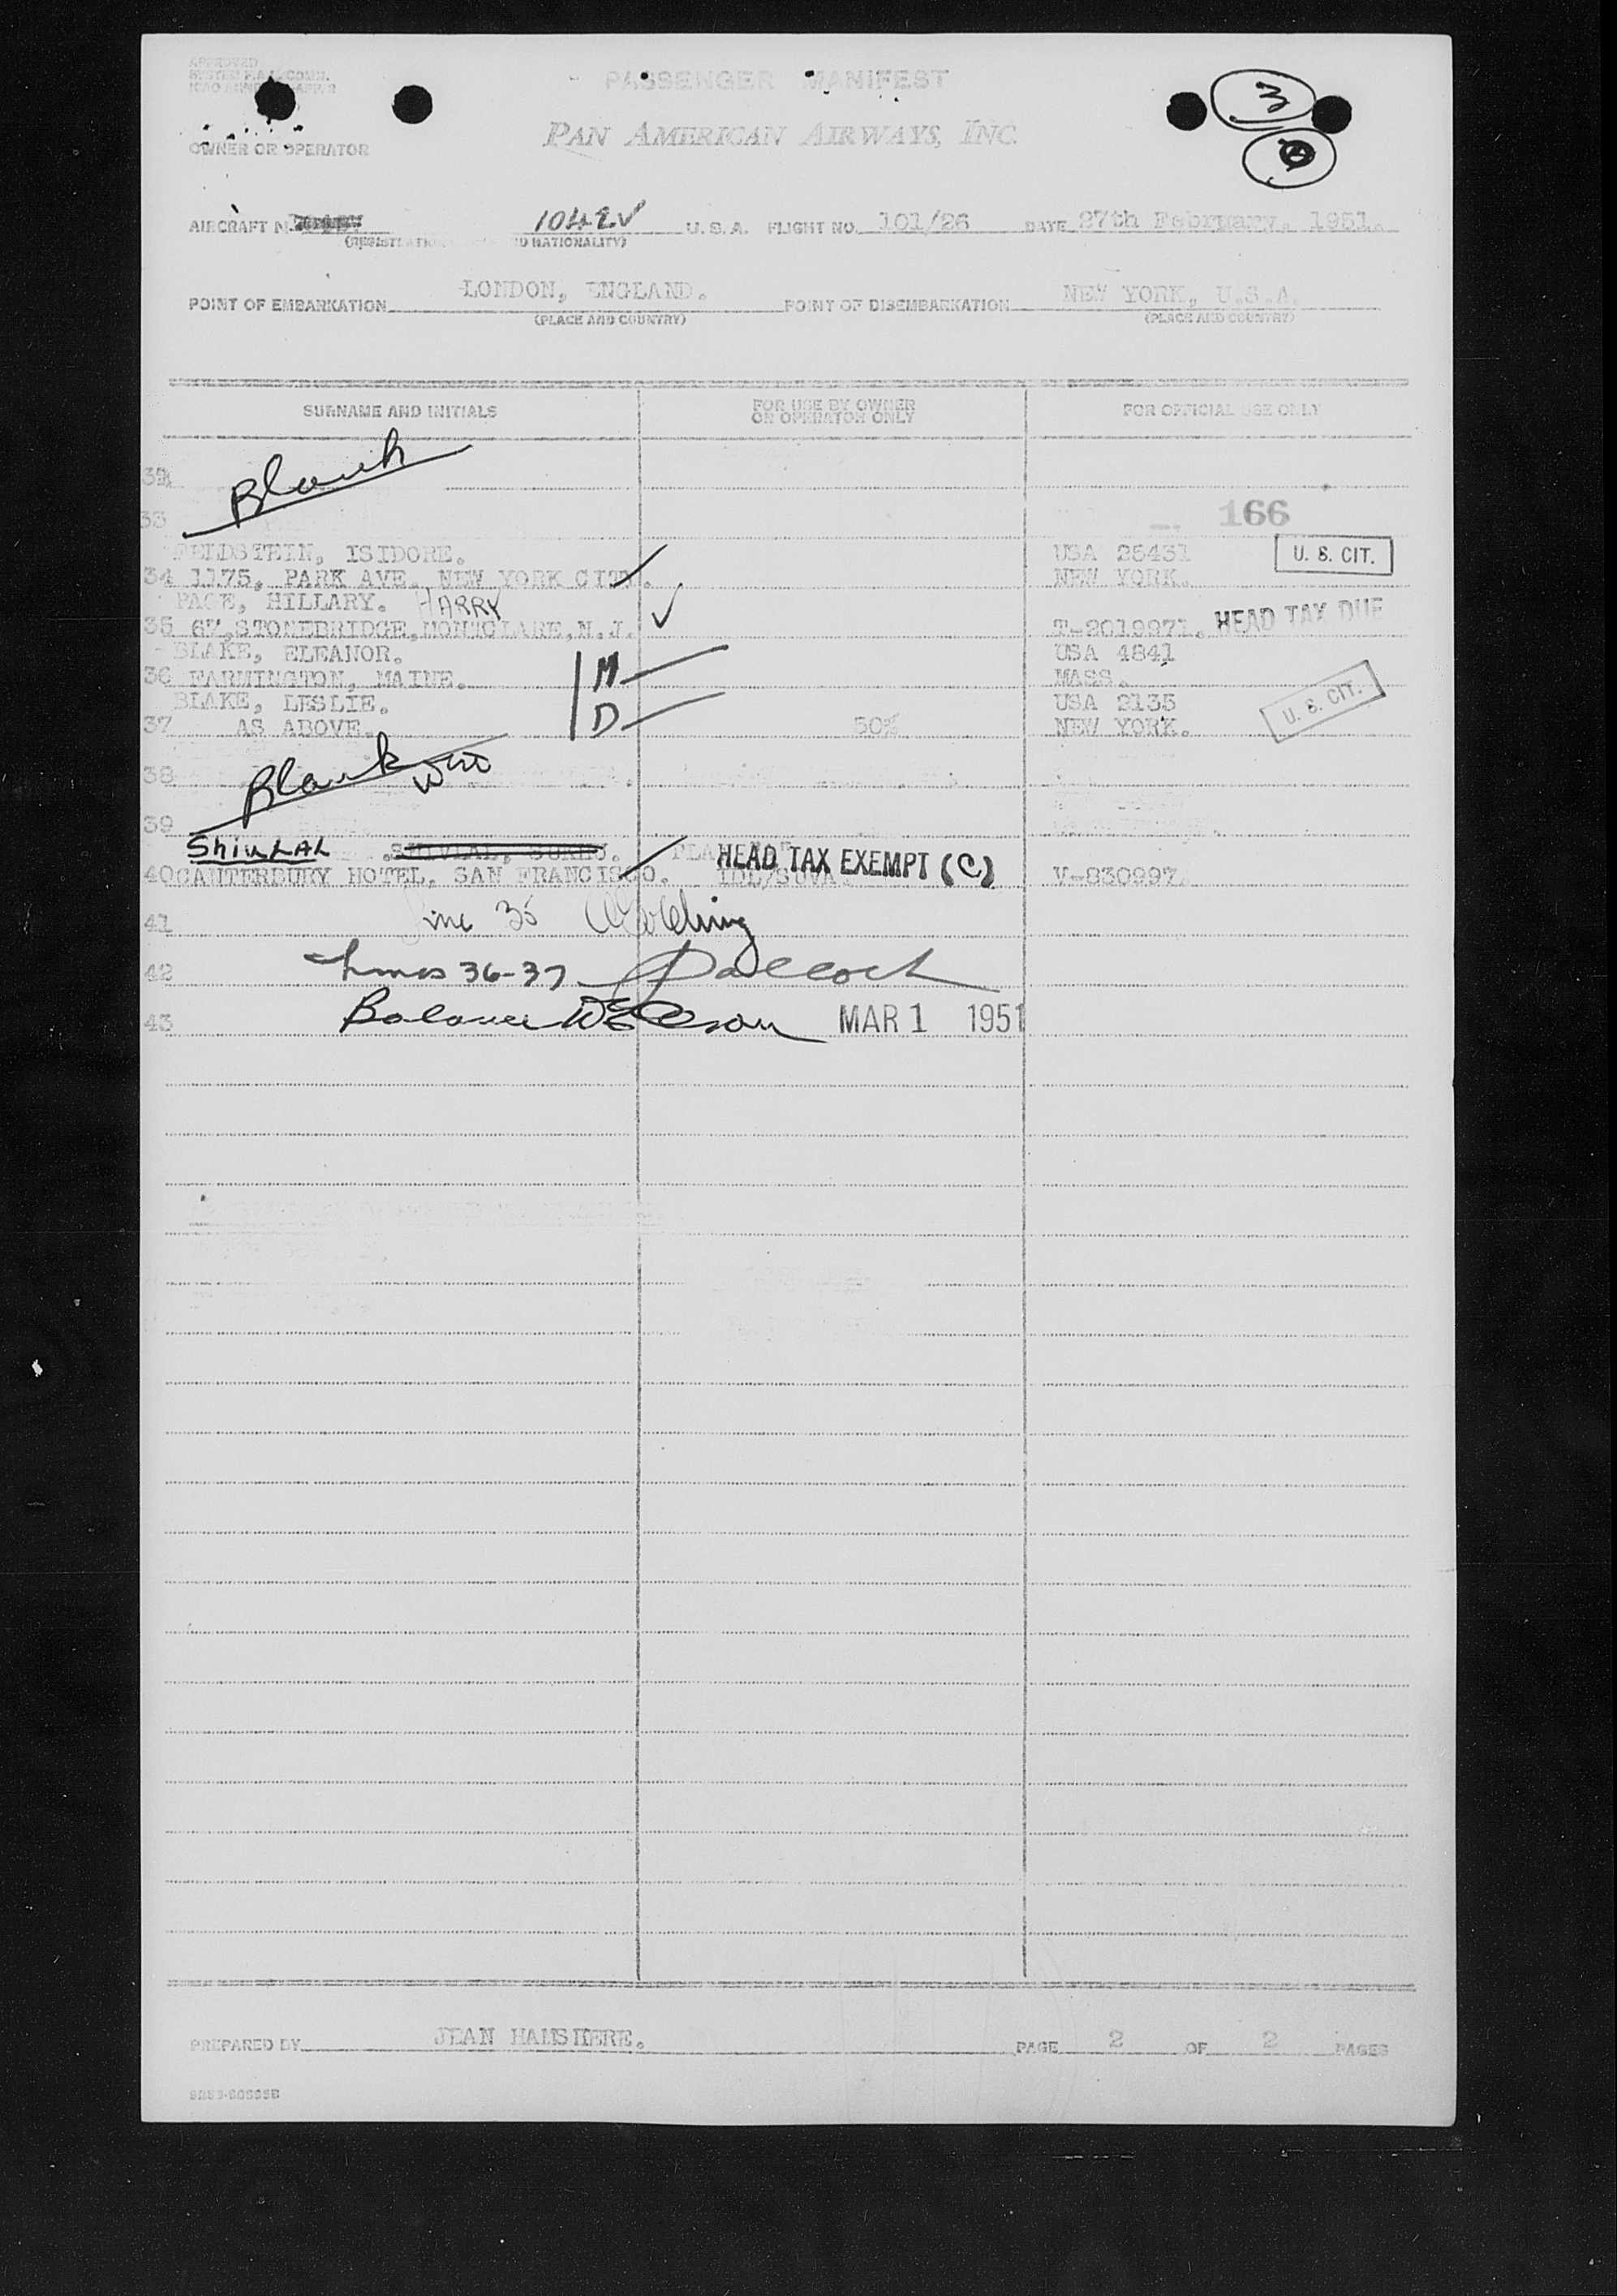 APPROVED
PASSENGER MANIFEST
PAN AMERICAN AIRWAYS, INC.
OWNER OR OPERATOR
AIRCRAFT 1042V U. S. A. FLIGHT NO. 101/26 DATE 27th February, 1951.
AND NATIONALITY)
POINT OF EMBARKATION LONDON, ENGLAND. POINT OF DISEMBARKATION NEW YORK, U.S.A.
(PLACE AND COUNTRY) (PLACE AND COUNTRY)
SURNAME AND INITIALS FOR USE BY OWNER OR OPERATOR ONLY FOR OFFICIAL USE ONLY
Blank
33 166
FELDSTEIN, ISIDORE. USA 25431 U. S. CIT.
34 1175, PARK AVE. NEW YORK CITY. NEW YORK.
PAGE, HILLARY. HARRY HEAD TAX DUE
35 67, STONEBRIDGE, MONTCLARE, N.J. T-2019971.
BLAKE, ELEANOR. M USA 4841
36 FARMINGTON, MAINE. MASS.
BLAKE, LESLIE. D USA 2135 U. S. CIT.
37 AS ABOVE. 50% NEW YORK.
38 Blank
39
ShivLAL SHIVLAL, HEAD TAX EXEMPT (C)
40 CANTERBURY HOTEL, SAN FRANCISCO. V-830997.
41 Line 35
42 Lines 36-37
43 Balance MAR 1 1951
PREPARED BY JEAN HAMSHERE. PAGE 2 OF 2 PAGES